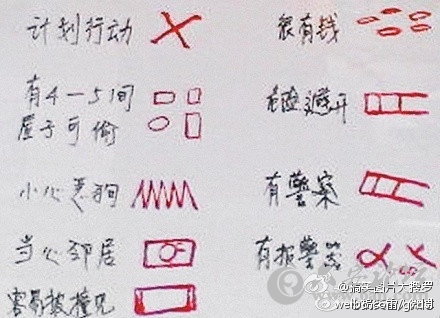 计划行动
很有钱
有4—5间
屋子可偷
危险避开
小心恶狗
有警察
当心邻居
有报警器
容易被撞见
@搞笑图片大搜罗